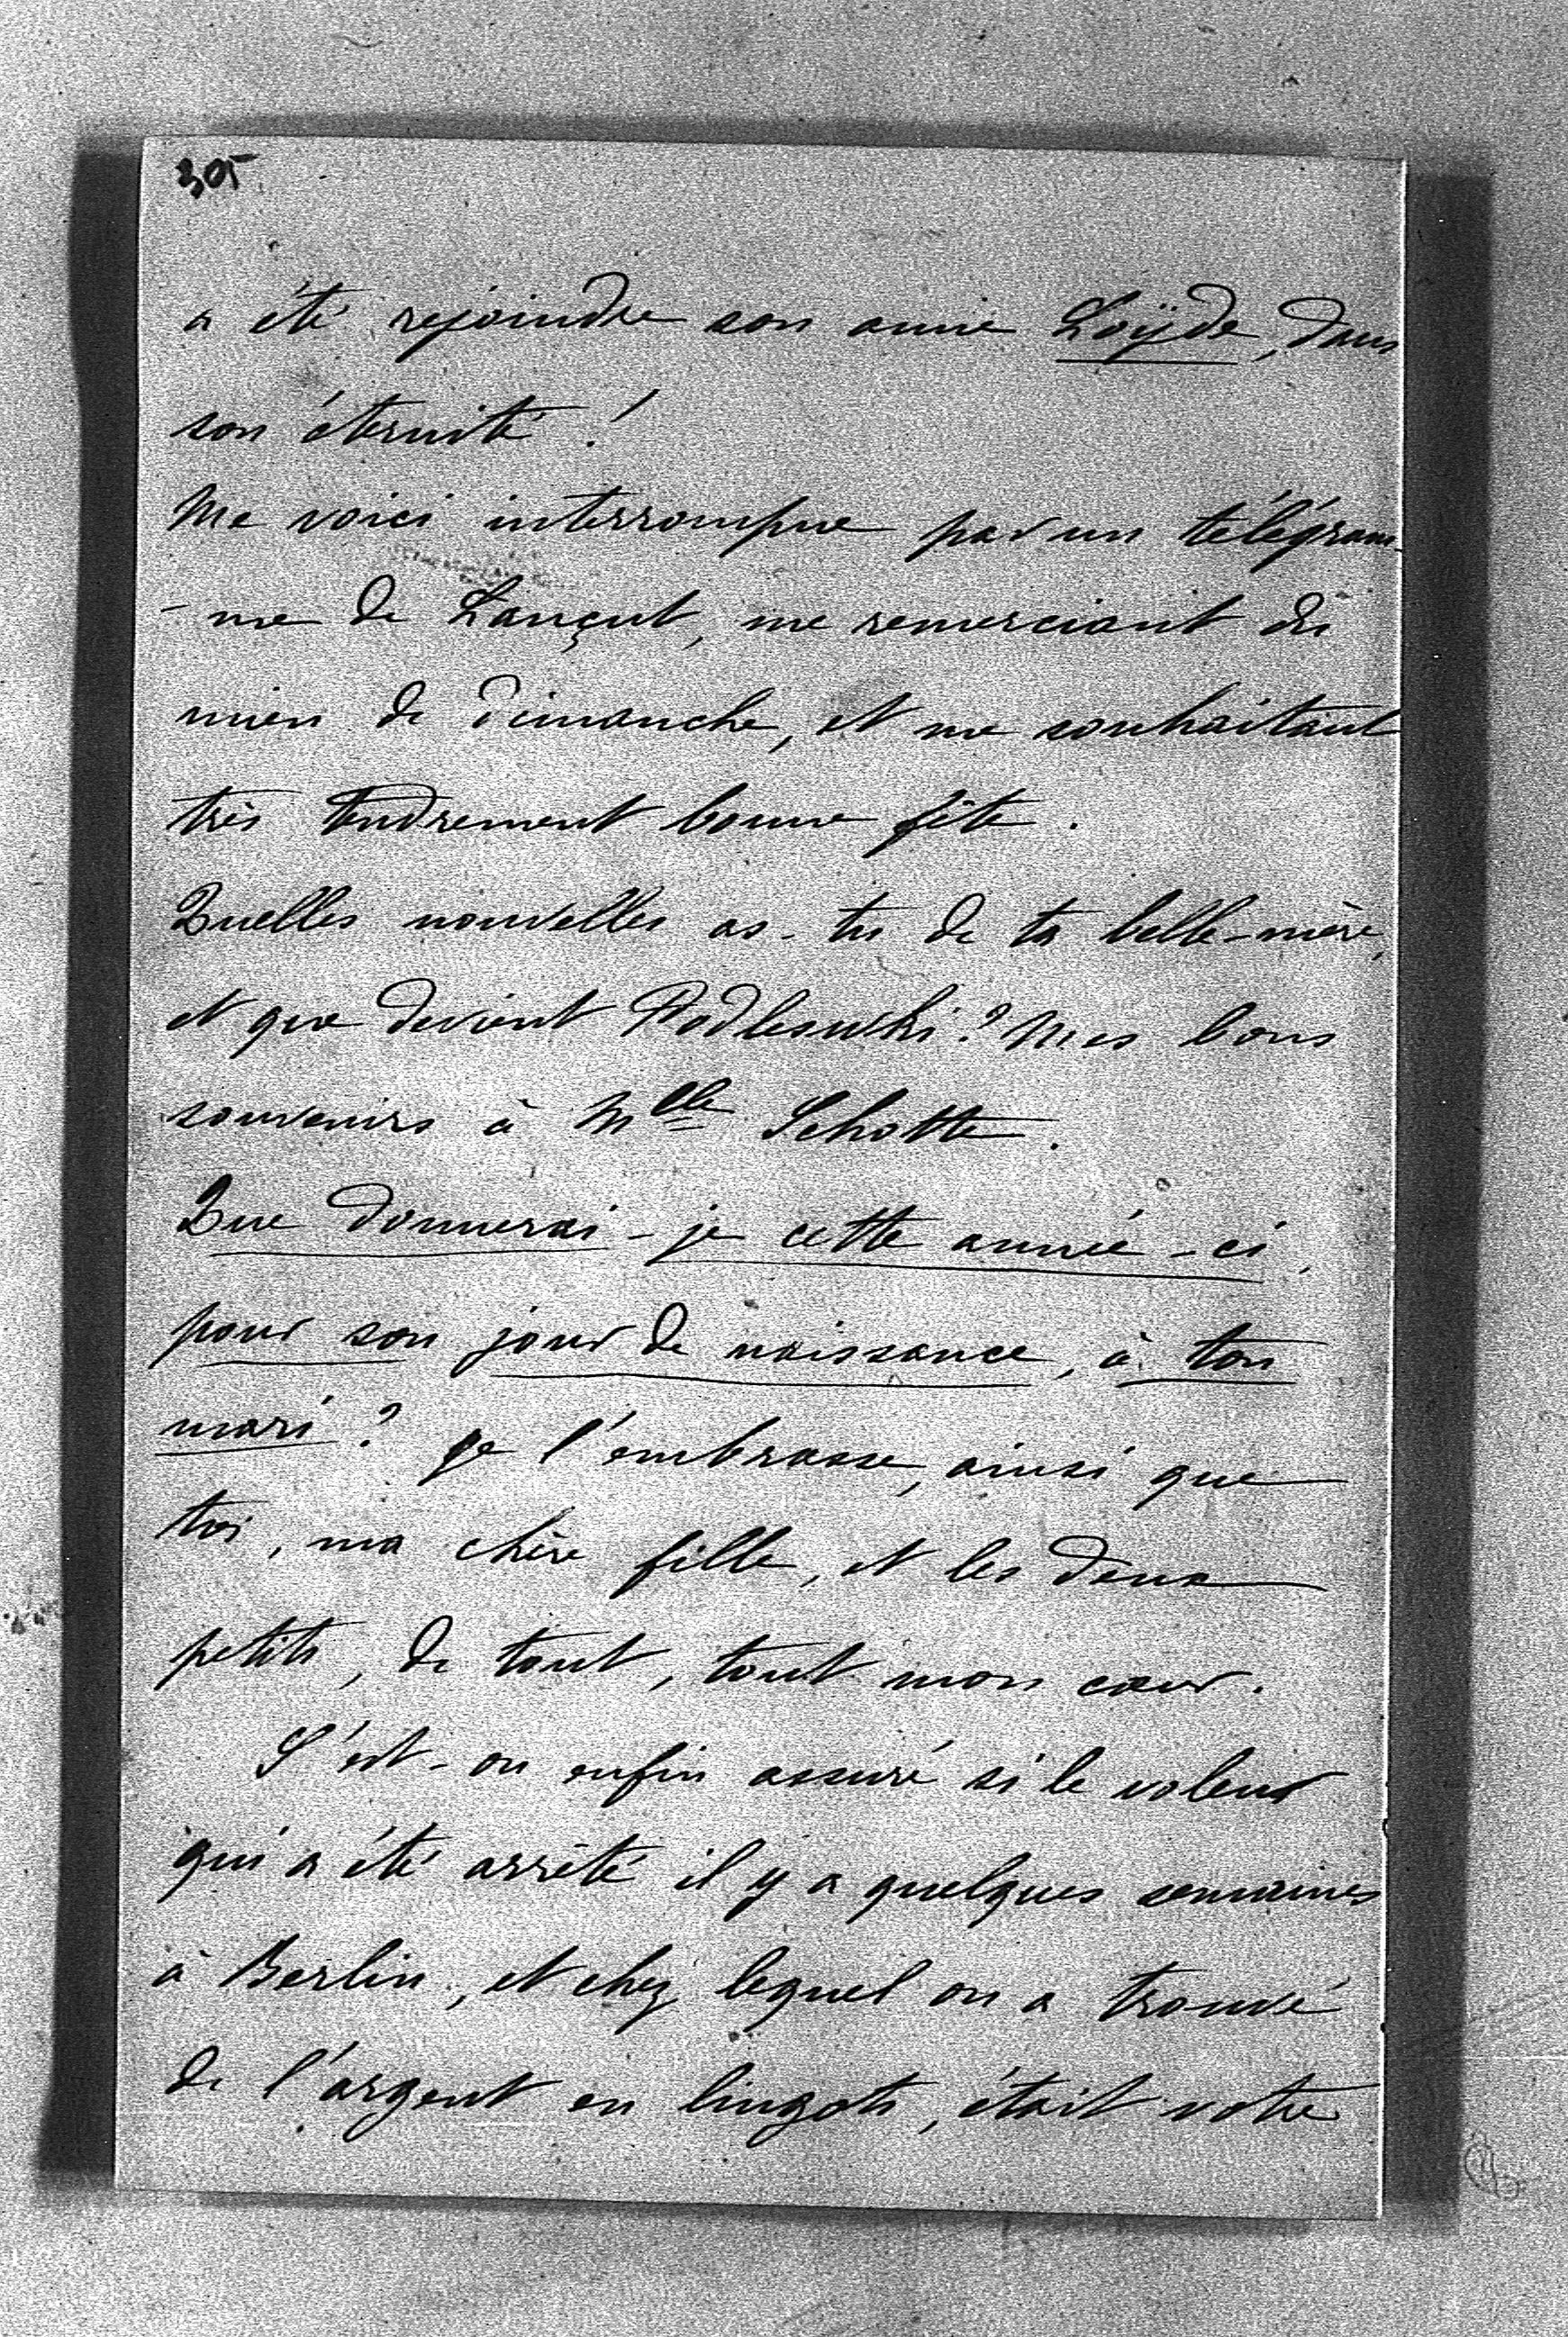 305
a été rejoindre son amie Loÿde, dans
son éternité !
Me voici interrompue par un télégram-
-me de Lançut, me remerciant du
mien de Dimanche, et me souhaitant
très tendrement bonne fête.
Quelles nouvelles as-tu de ta belle-mère,
et que devient Podlewski ? Mes bons
souvenirs à Mlle Schotte.
Que donnerai-je cette année-ci,
pour son jour de naissance, à ton
mari ? Je l'embrasse, ainsi que
toi, ma chère fille, et les deux
petits, de tout, tout mon cœur.
S'est-on enfin assuré si le voleur
qui a été arrêté il y a quelques semaines
à Berlin, et chez lequel on a trouvé
de l'argent en lingots, était votre